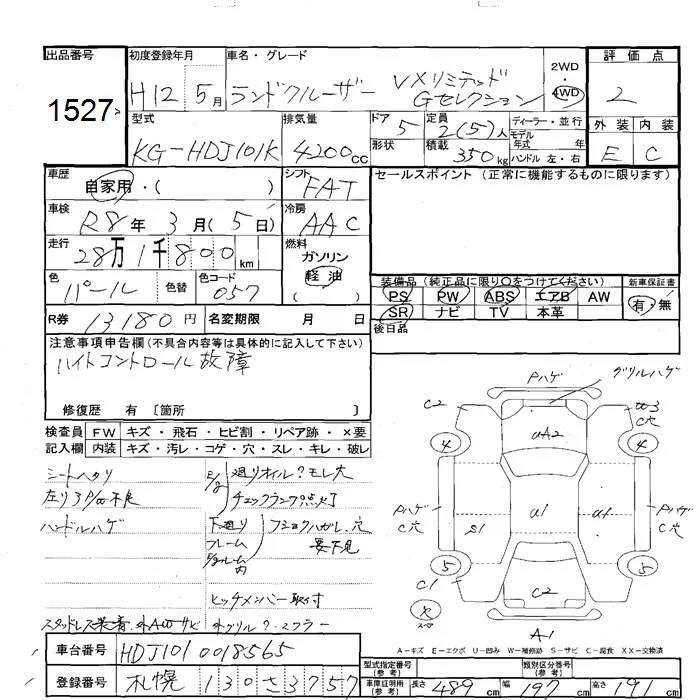 出品番号 初度登録年月 車名・グレード 2WD 評価点
1527 H12 5月 ランドクルーザー VXリミテッド Gセレクション ・ 4WD 2
型式 排気量 ドア 5 定員 2(5)人 ディーラー・並行 外装 内装
KG-HDJ101K 4200cc 形状 積載 350kg モデル年式 年 ハンドル 左・右 E C
車歴 自家用・( ) シフト FAT セールスポイント (正常に機能するものに限ります)
車検 R8年3月(5日) 冷房 AAC
走行 28万1千800km 燃料 ガソリン 軽油 ( )
色 パール 色替 色コード 057 装備品 (純正品に限り○をつけてください) 新車保証書
PS PW ABS エアB AW 有・無
SR ナビ TV 本革
R券 13180円 名変期限 月 日 後日品
注意事項申告欄(不具合内容等は具体的に記入して下さい)
ハイトコントロール故障
修復歴 有 [箇所 ]
検査員 FW キズ・飛石・ヒビ割・リペア跡・×要
記入欄 内装 キズ・汚レ・コゲ・穴・スレ・キレ・破レ
シートヘタリ
チェックランプ?点灯
ハンドルハゲ
下廻り
フレーム
ヒッチメンバー取付
Pハゲ グリルハゲ
C2 穴
4 UA2 4
Pハゲ C穴 S1 U1 U1 Pハゲ C穴
5 5
C1 C2
A1
A-キズ E-エクボ U-凹み W-補修跡 S-サビ C-腐食 XX-交換済
車台番号 HDJ101 0018565
登録番号 札幌 130さ3757
型式指定番号(参考) 類別区分番号(参考)
車庫証明用(参考) 長さ 489cm 幅 197cm 高さ 191cm